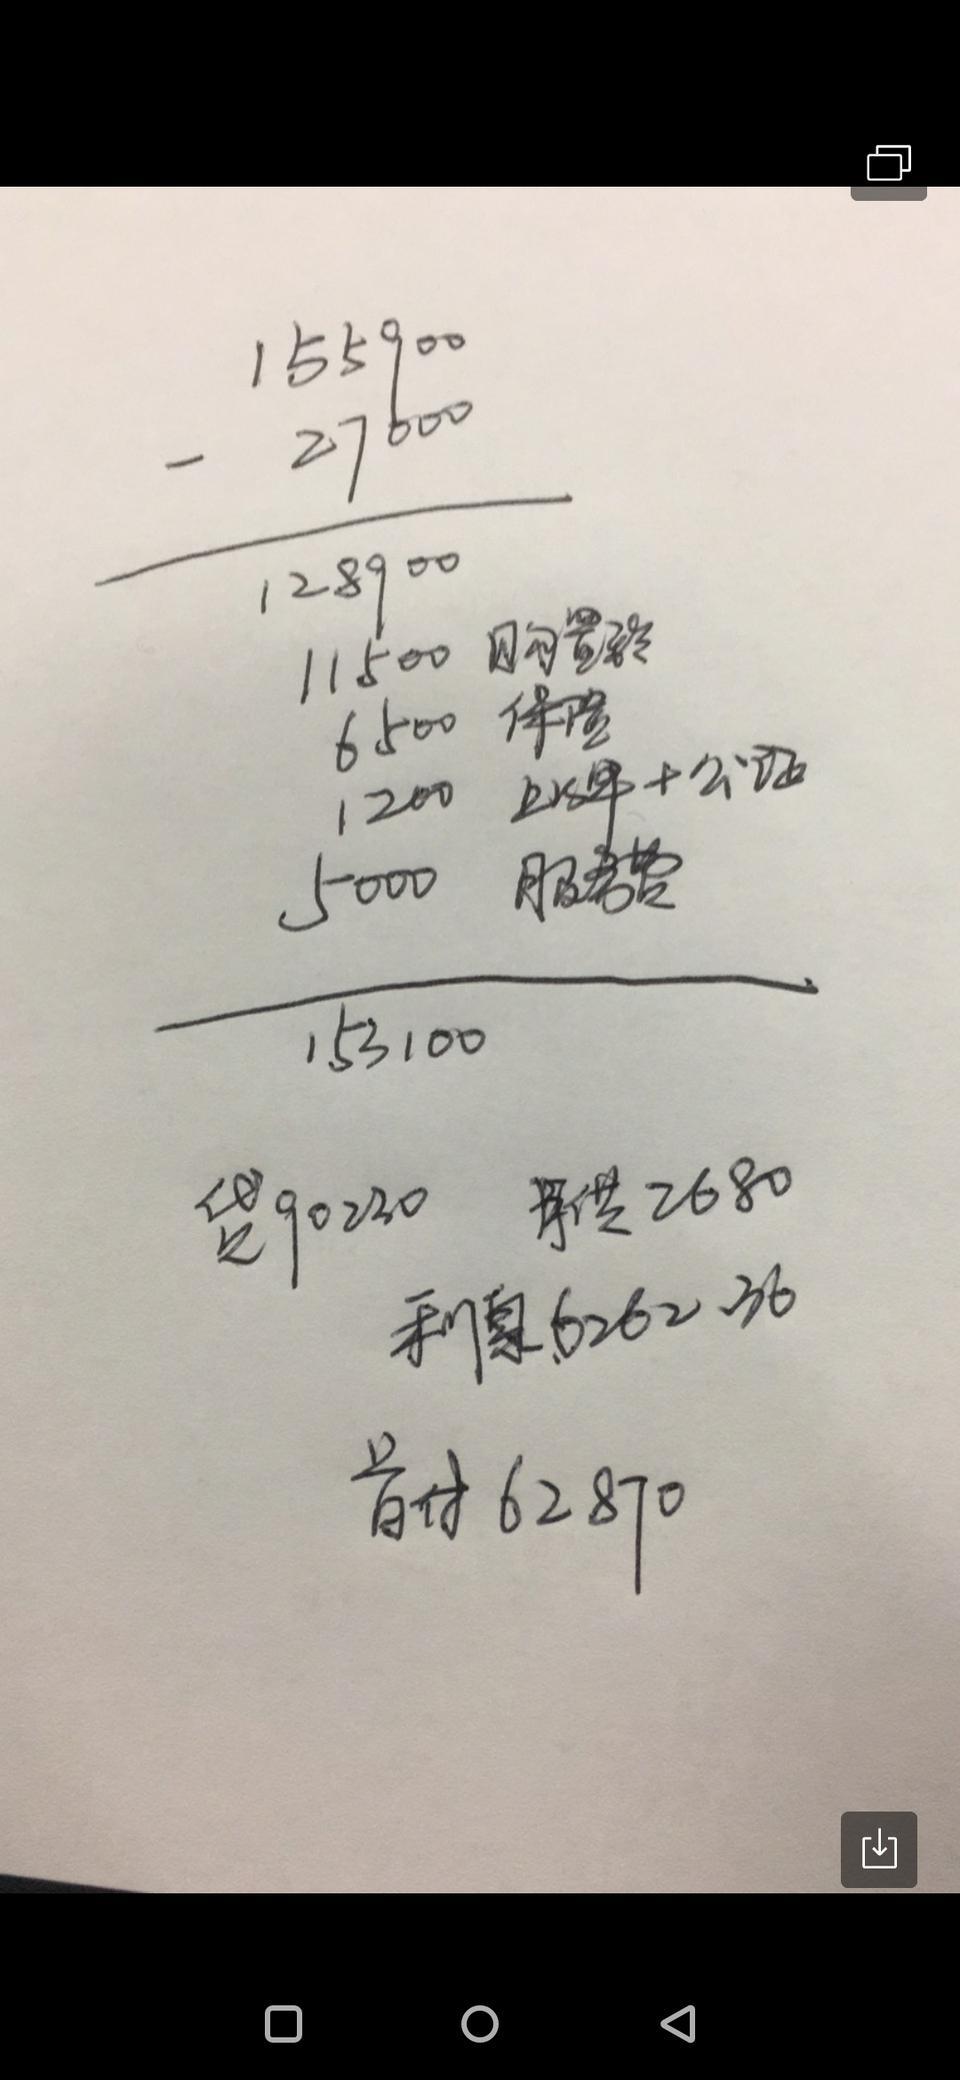 155900
- 27000
128900
11500 购置税
6500 保险
1200 上牌+公证
5000 服务费
153100
贷90230 月供2680
利息6262.36
首付62870